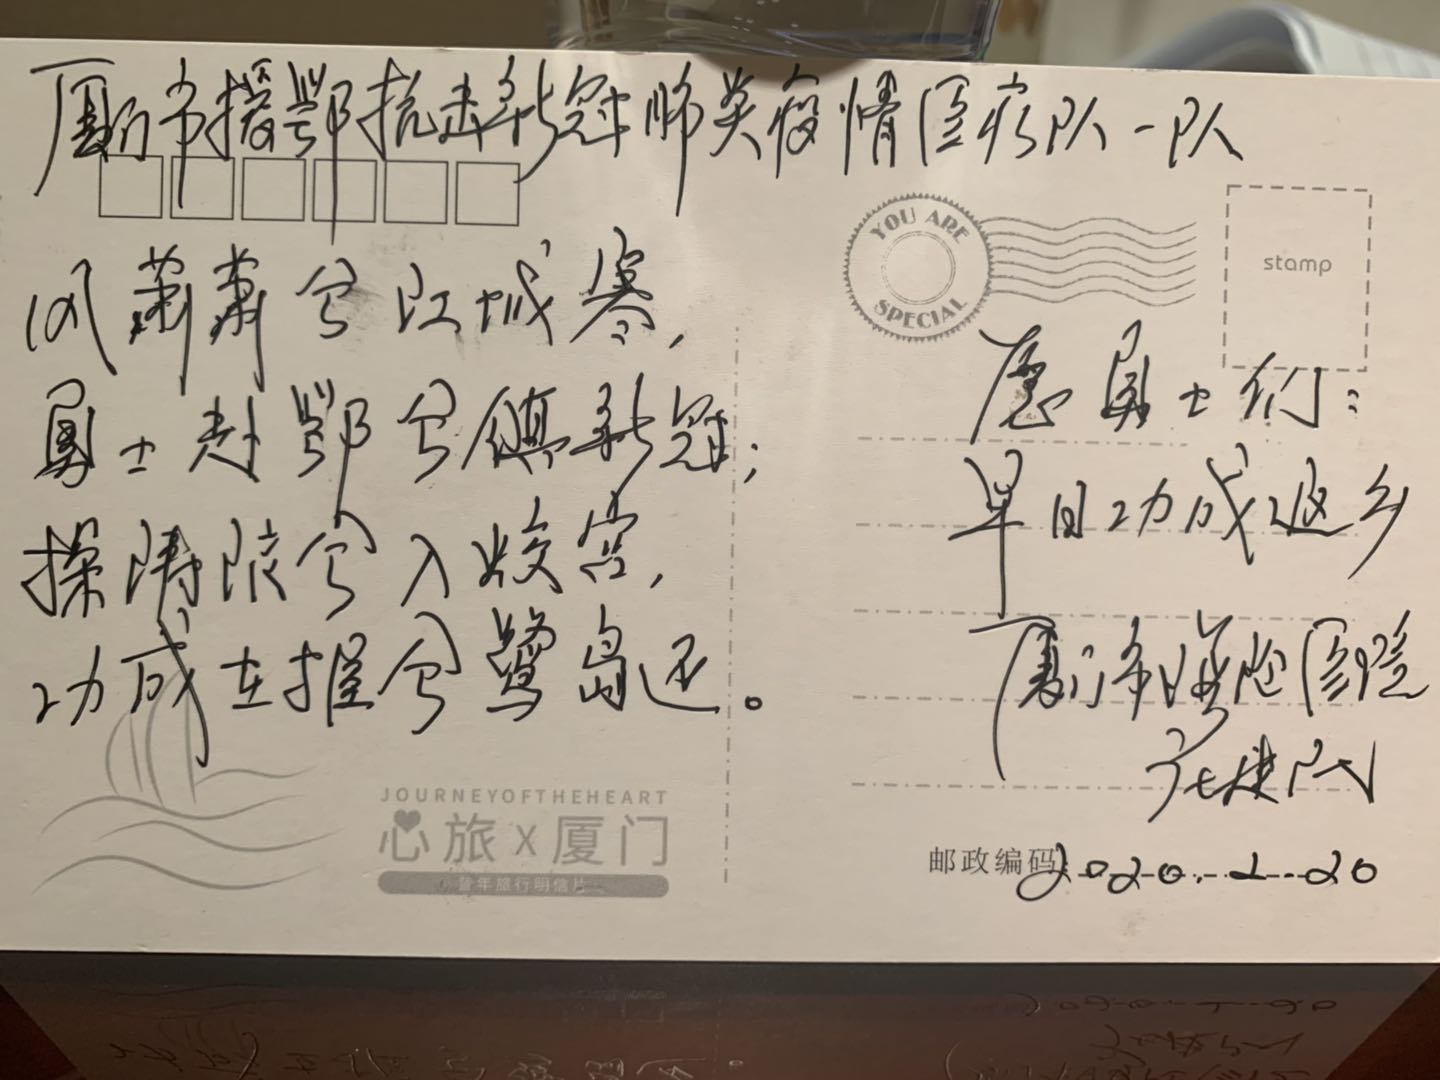 厦门市援鄂抗击新冠肺炎疫情医疗队一队
风萧萧兮江城寒，
勇士赴鄂兮镇新冠；
探隔院兮入蛟宫，
功成在握兮鹭岛还。
YOU ARE SPECIAL
stamp
愿勇士们：
早日功成返乡
厦门
2020.2.20
JOURNEYOFTHEHEART
心旅x厦门
百年旅行明信片
邮政编码